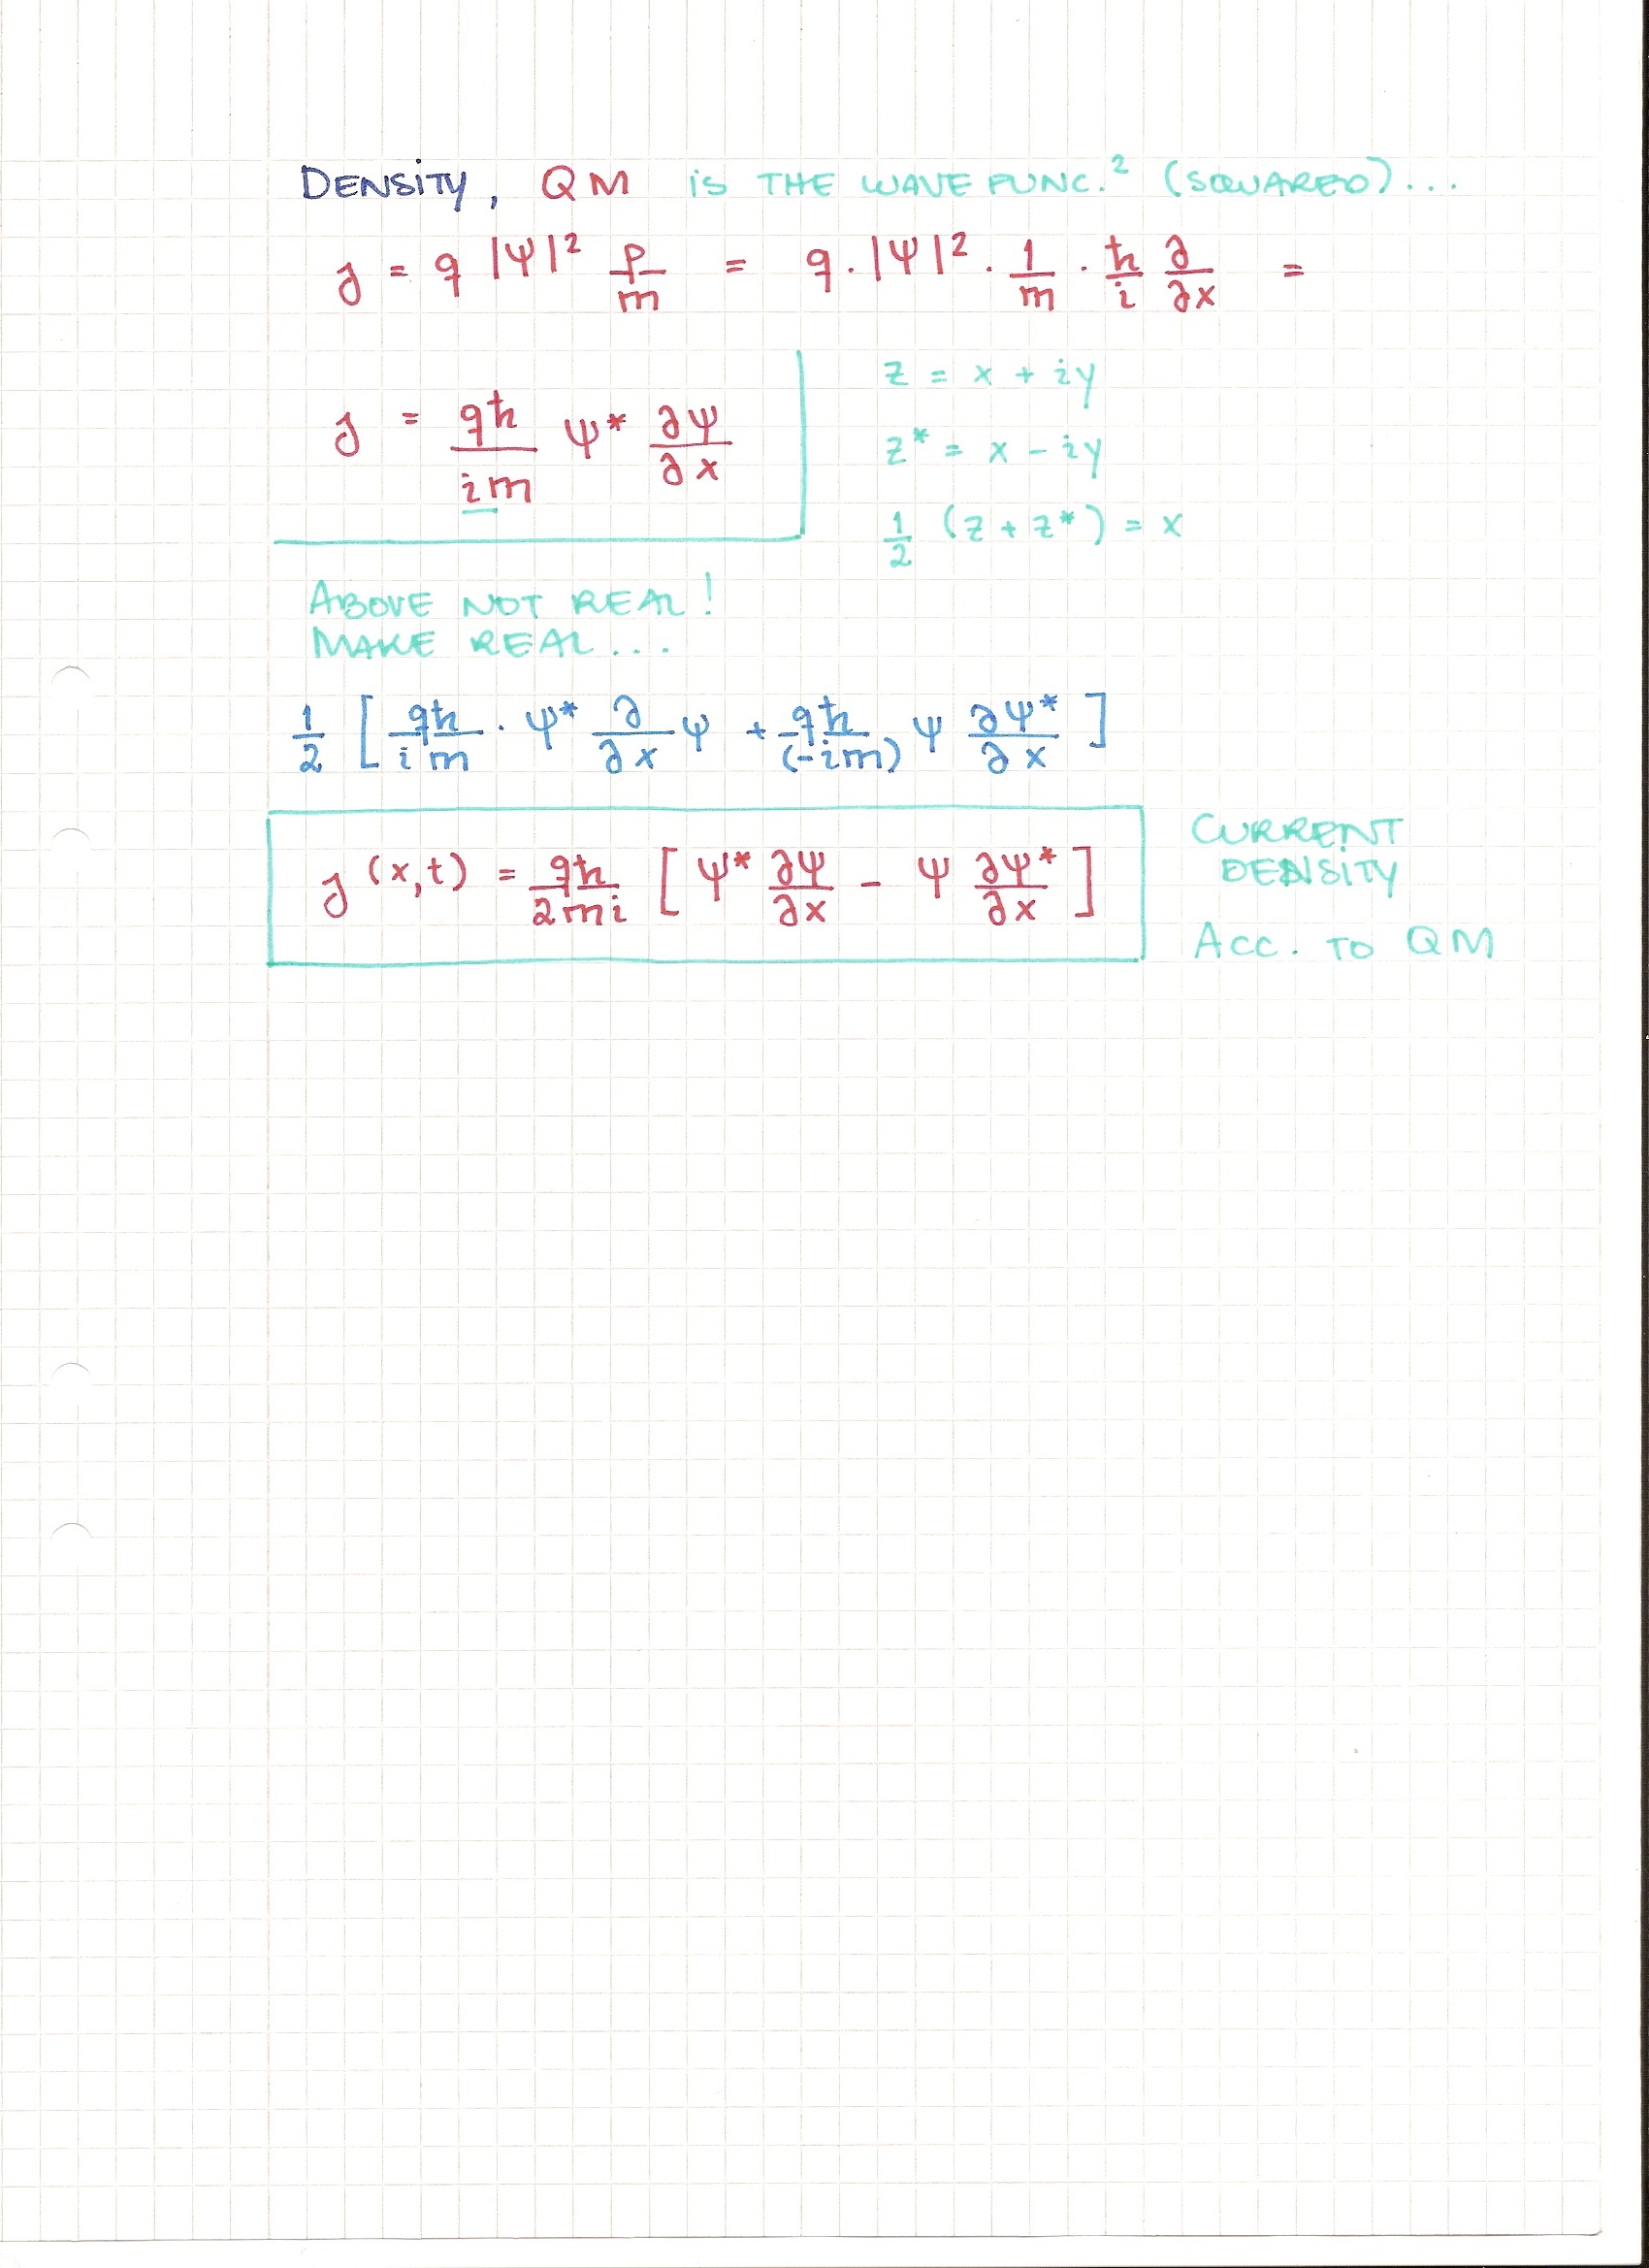 DENSITY, QM IS THE WAVE FUNC.² (SQUARED)...
j = q |ψ|² p/m = q · |ψ|² · 1/m · ħ/i ∂/∂x =
j = qħ/im ψ* ∂ψ/∂x
z = x + iy
z* = x − iy
1/2 (z + z*) = x
ABOVE NOT REAL!
MAKE REAL...
1/2 [ qħ/im · ψ* ∂/∂x ψ + qħ/(−im) ψ ∂ψ*/∂x ]
j(x,t) = qħ/2mi [ ψ* ∂ψ/∂x − ψ ∂ψ*/∂x ]
CURRENT
DENSITY
ACC. TO QM